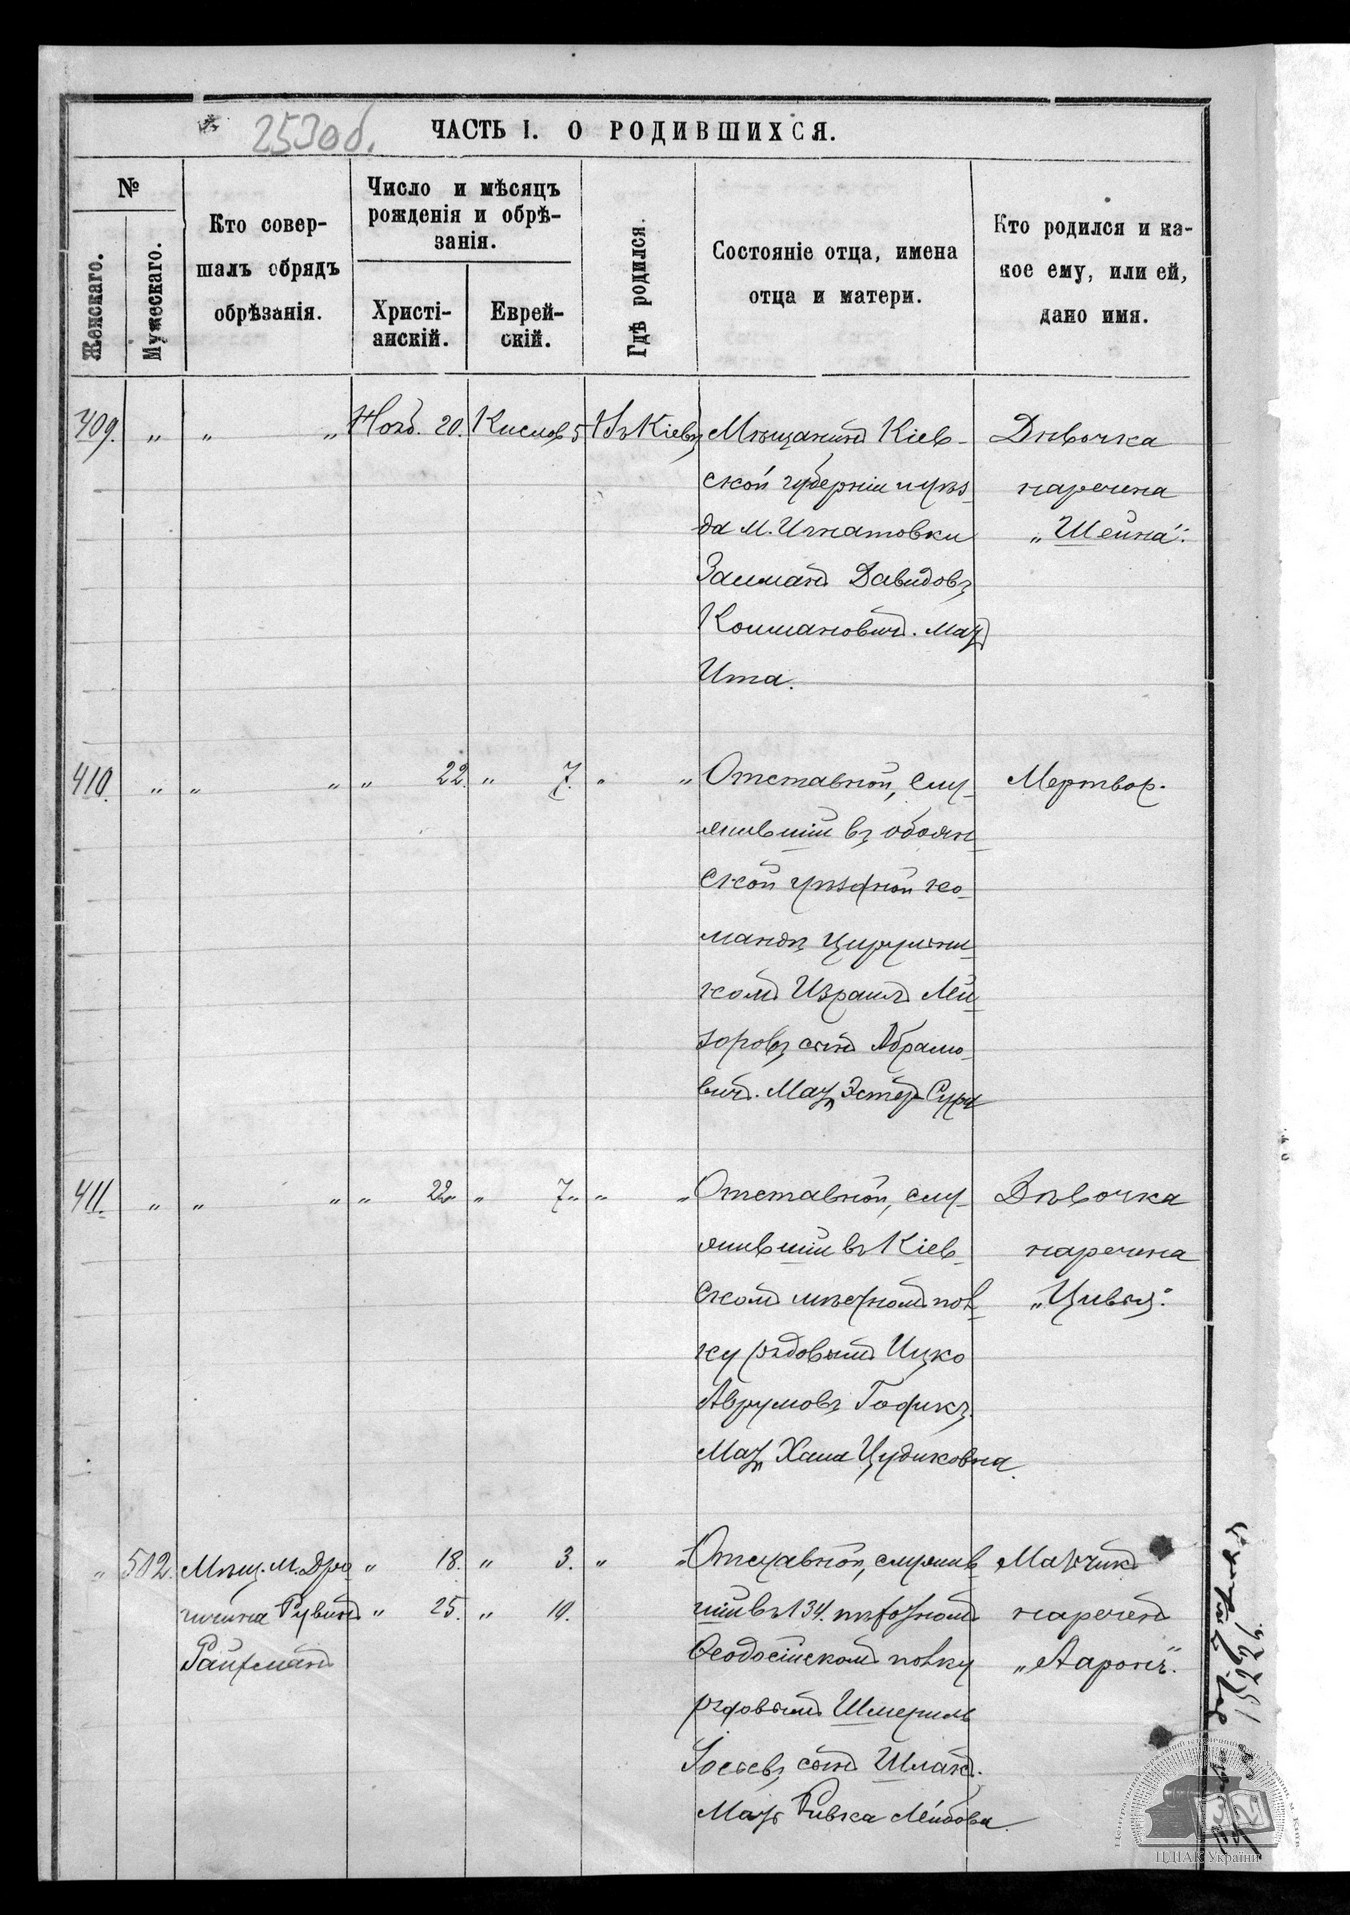 253об.
ЧАСТЬ I. О РОДИВШИХСЯ.
№
Женскаго.
Мужескаго.
Кто совер-
шалъ обрядъ
обрѣзанія.
Число и мѣсяцъ
рожденія и обрѣ-
занія.
Христі-
анскій.
Еврей-
скій.
Гдѣ родился.
Состояніе отца, имена
отца и матери.
Кто родился и ка-
кое ему, или ей,
дано имя.
409. „ „ „ Нояб. 20. Кислов 5 Въ Кіевѣ
Мѣщанинъ Кіев-
ской губерніи и уѣз-
да м. Игнатовки
Залманъ Давидовъ
Колмановичъ. Мать
Ита.
Дѣвочка
наречена
„Шейна".
410. „ „ „ „ 22. „ 7. „ „
Отставной, слу-
жившій въ обоян-
ской уѣздной ко-
мандѣ цирульни-
комъ Израиль Лей-
зоровъ сынъ Абрамо-
вичъ. Мать Эстеръ Сура
Мертвор.
411. „ „ „ „ 22. „ 7. „ „
Отставной, слу-
жившій въ Кіев-
скомъ мѣстномъ пол-
ку рядовымъ Ицко
Аврумовъ Гофикъ.
Мать Хана Цудиковна.
Дѣвочка
наречена
„Цивья".
„ 502. Мѣщ. м. Дро „ 18. „ 3. „ „
гичина Рувинъ „ 25. „ 10.
Райзманъ
Отставной, служив
шій въ 134. пѣхотномъ
Ѳеодосійскомъ полку
рядовымъ Шмериль
Іосьевъ сынъ Шланъ.
Мать Ривка Лейбова.
Мальчикъ
нареченъ
„Ааронъ".
ЦДІАК України